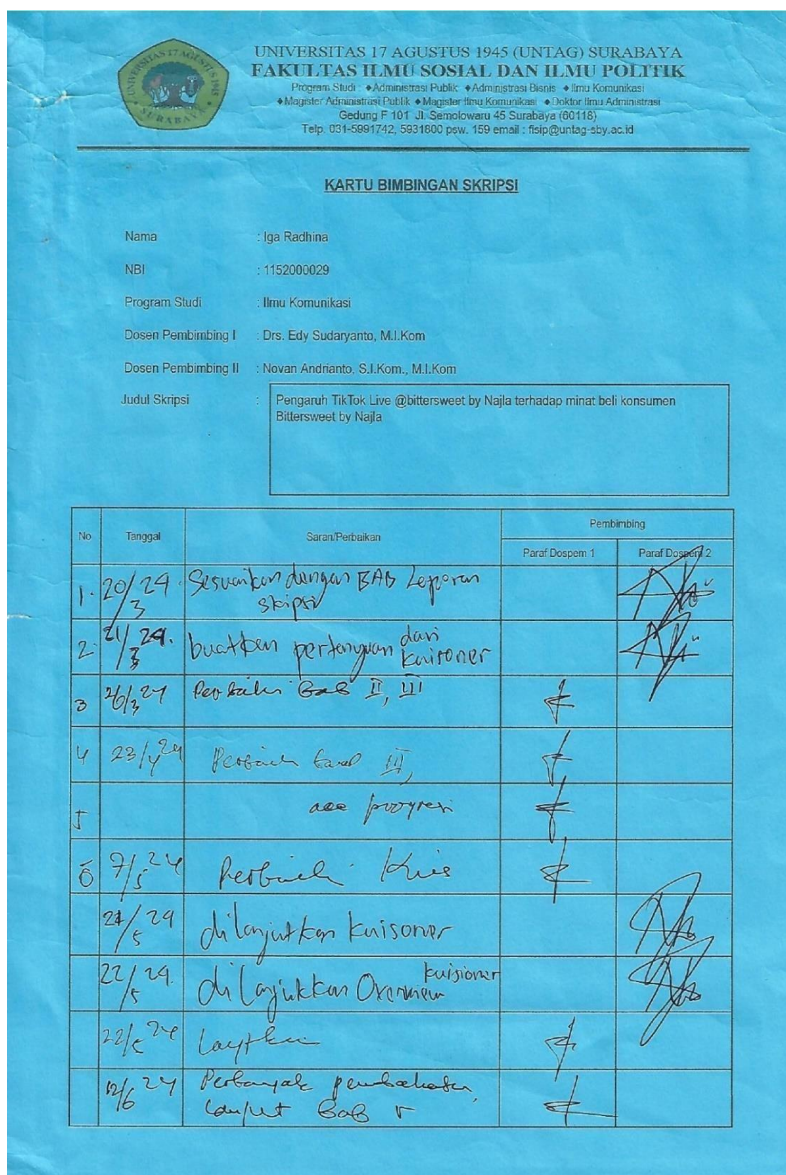 UNIVERSITAS 17 AGUSTUS 1945
SURABAYA
UNIVERSITAS 17 AGUSTUS 1945 (UNTAG) SURABAYA
FAKULTAS ILMU SOSIAL DAN ILMU POLITIK
Program Studi : ◆Administrasi Publik ◆Administrasi Bisnis ◆Ilmu Komunikasi
◆Magister Administrasi Publik ◆Magister Ilmu Komunikasi ◆Doktor Ilmu Administrasi
Gedung F 101 Jl. Semolowaru 45 Surabaya (60118)
Telp. 031-5991742, 5931800 psw. 159 email : fisip@untag-sby.ac.id
KARTU BIMBINGAN SKRIPSI
Nama : Iga Radhina
NBI : 1152000029
Program Studi : Ilmu Komunikasi
Dosen Pembimbing I : Drs. Edy Sudaryanto, M.I.Kom
Dosen Pembimbing II : Novan Andrianto, S.I.Kom., M.I.Kom
Judul Skripsi : Pengaruh TikTok Live @bittersweet by Najla terhadap minat beli konsumen
Bittersweet by Najla
No Tanggal Saran/Perbaikan Pembimbing
Paraf Dospem 1 Paraf Dospem 2
1. 20/3 24 Sesuaikan dengan BAB Laporan
skripsi
2. 21/3 24. buatkan pertanyaan dari
kuisoner
3 26/3 24 Perbaiki Bab II, III
4 23/4 24 Perbaiki III,
5 acc progres
6 7/5 24 Perbaiki Kuis
21/5 24 dilanjutkan kuisoner
22/5 24. dilanjutkan kuisioner
22/5 24 Lanjutkan
12/6 24 Perbanyak pembahasan,
lanjut Bab V